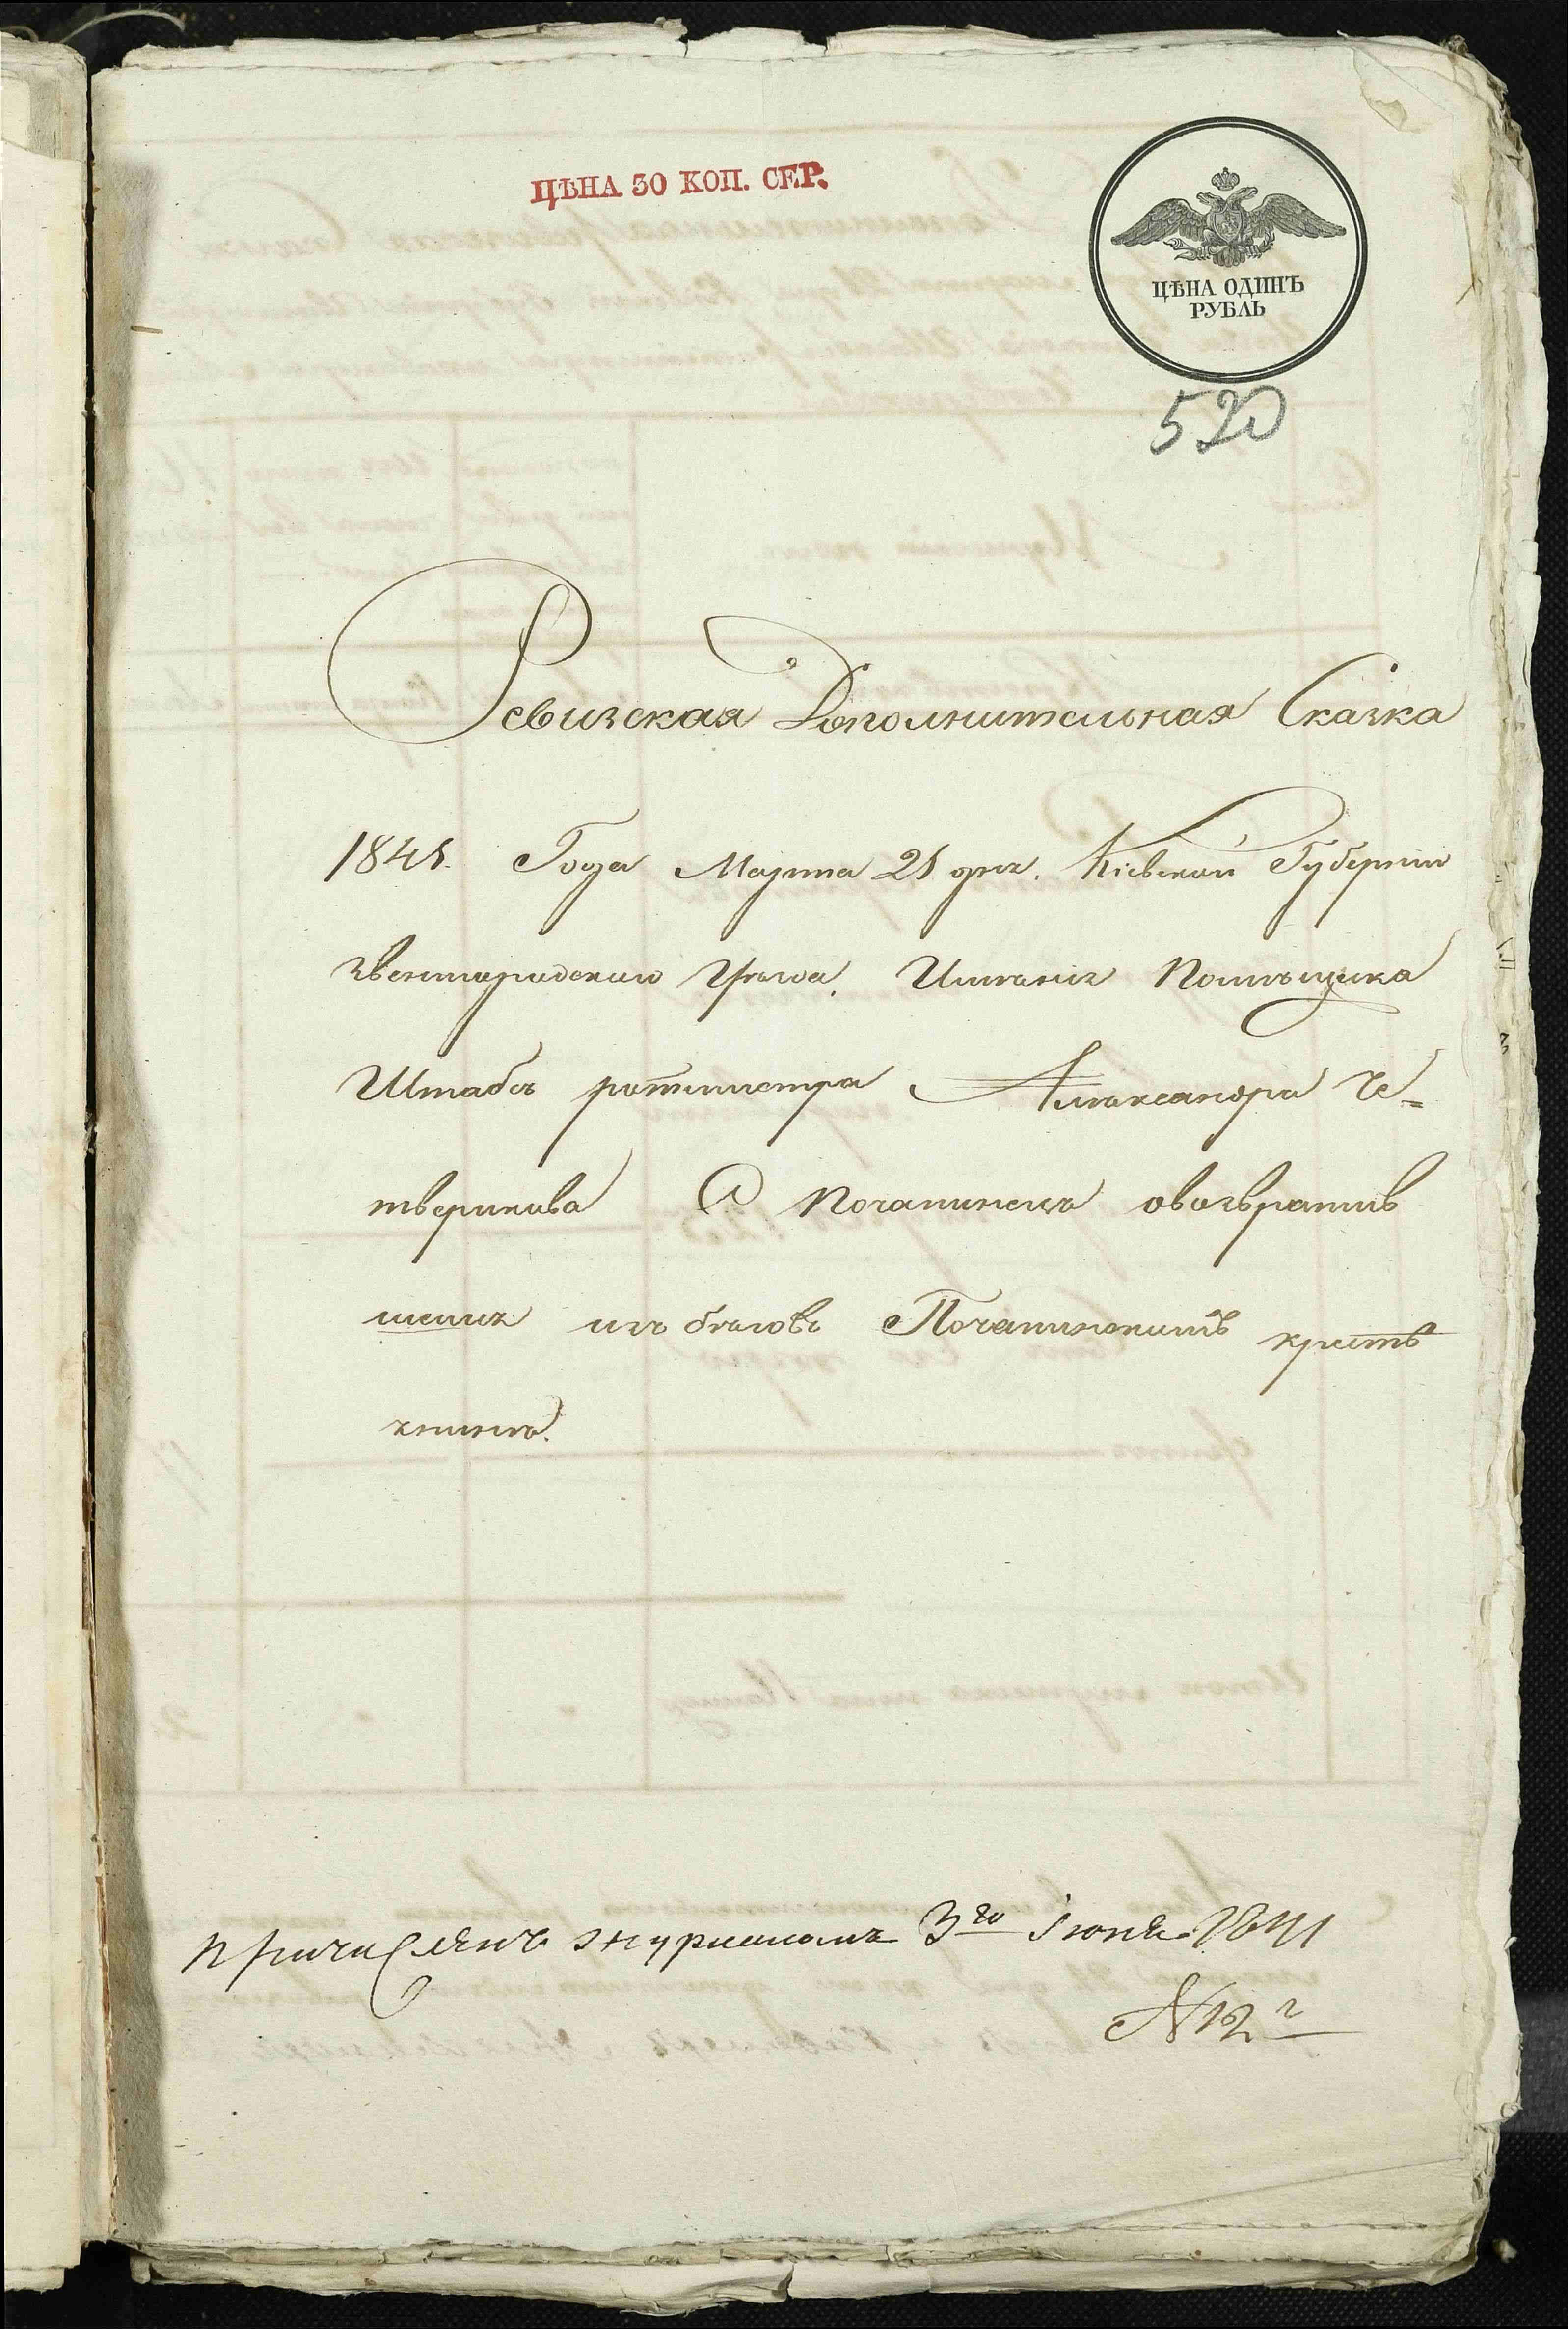 ЦѢНА 30 КОП. СЕР.
ЦѢНА ОДИНЪ
РУБЛЬ
520
Ревизская Дополнительная Сказка
1841. Года Марта 21 дня. Кіевской Губерніи
Звенигородского Уѣзда. Имѣнія Помѣщика
Штабсъ ротмистра Алѣксандра Че=
тверикова С Почапинецъ овозвратив
шемся изъ бѣговъ Почапинскимъ крестъ
янинѣ.
причисленъ журналомъ 3го Іюня 1841
№ 12